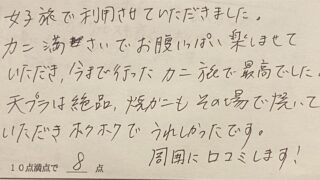 女子旅で利用させていただきました。
カニ満さいでお腹いっぱい楽しませて
いただき、今まで行ったカニ旅で最高でした。
天プラは絶品、焼ガニもその場で焼いて
いただきホクホクでうれしかったです。
周囲に口コミします!
10点満点で 8 点